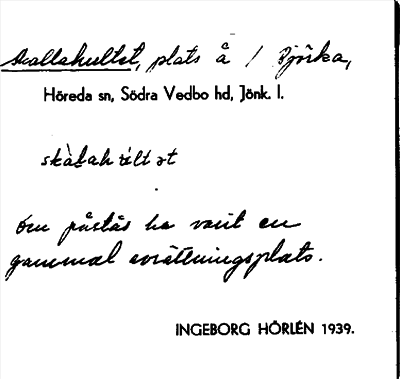 Skallahultet, plats å / Björka,
Höreda sn, Södra Vedbo hd, Jönk. l.
skàlahúltət
Den påstås ha varit en
gammal avrättningsplats.
INGEBORG HÖRLÉN 1939.